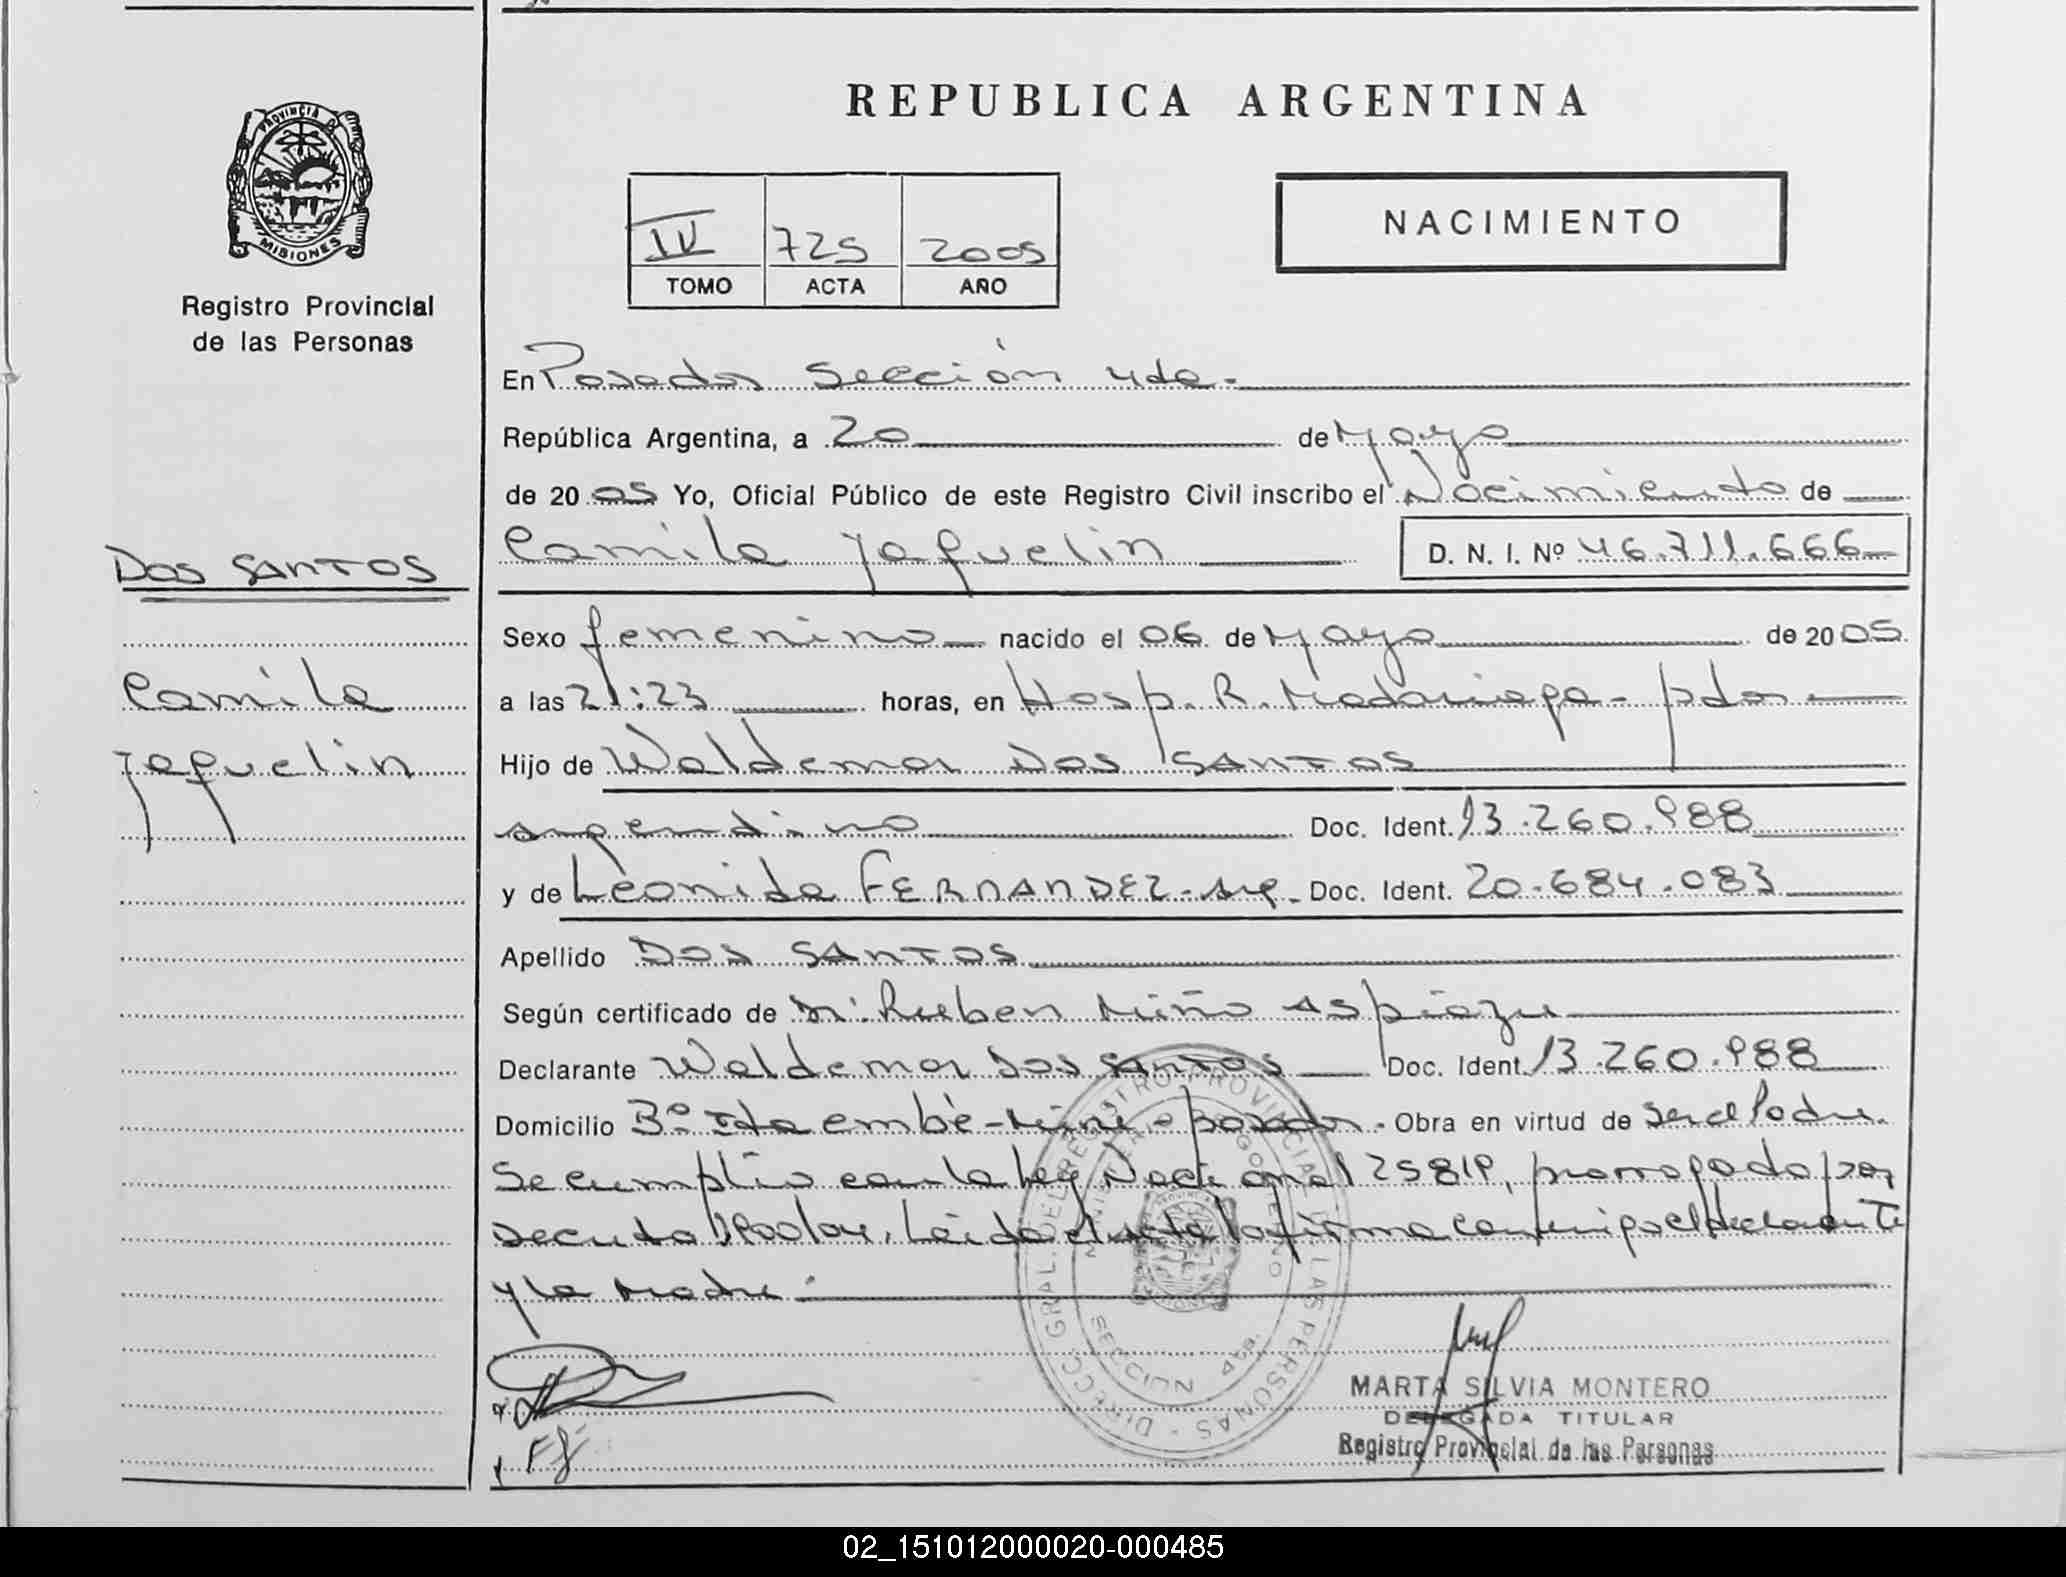 PROVINCIA DE
MISIONES
Registro Provincial
de las Personas
DOS SANTOS
Camila
Jaquelin
REPUBLICA ARGENTINA
IV 725 2005
TOMO ACTA AÑO
NACIMIENTO
En Posadas Sección 4ta.
República Argentina, a 20 de Mayo
de 2005 Yo, Oficial Público de este Registro Civil inscribo el Nacimiento de
Camila Jaquelin D. N. I. Nº 46.711.666
Sexo femenino nacido el 06 de Mayo de 2005
a las 21:23 horas, en Hosp. R. Madariaga - pdas
Hijo de Waldemar DOS SANTOS
argentino Doc. Ident. 13.260.988
y de Leonida FERNANDEZ - arg. Doc. Ident. 20.684.083
Apellido DOS SANTOS
Según certificado de Ruben Miño Aspiazu
Declarante Waldemar Dos Santos Doc. Ident. 13.260.988
Domicilio Itaembé - Miní - posadas. Obra en virtud de ser el Padre.
Se cumplio con la ley Nacional 25819, prorrogado por
decreto Leida el acta la firma conmigo el declarante
y la Madre.
DIRECC. GRAL. DEL REGISTRO PROVINCIAL DE LAS PERSONAS
MINISTERIO GOBIERNO
SECCION 4ta.
MARTA SILVIA MONTERO
DELEGADA TITULAR
Registro Provincial de las Personas
02_151012000020-000485